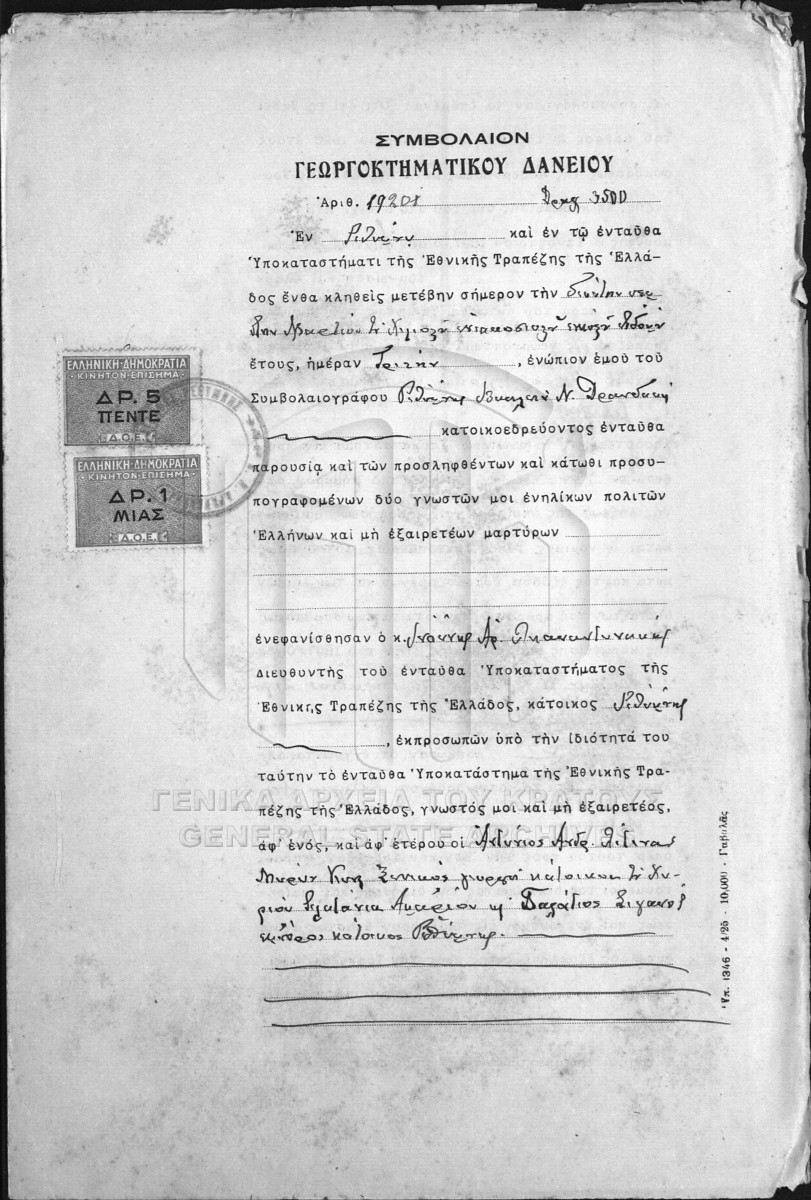 ΣΥΜΒΟΛΑΙΟΝ
ΓΕΩΡΓΟΚΤΗΜΑΤΙΚΟΥ ΔΑΝΕΙΟΥ
Ἀριθ. 19201 Δρχ 3500
Ἐν Ρεθύμνῃ καὶ ἐν τῷ ἐνταῦθα
Ὑποκαταστήματι τῆς Ἐθνικῆς Τραπέζης τῆς Ἑλλά-
δος ἔνθα κληθεὶς μετέβην σήμερον τὴν
Μαρτίου τοῦ χιλιοστοῦ ἐννιακοσιοστοῦ εἰκοστοῦ
ἔτους, ἡμέραν Τρίτην, ἐνώπιον ἐμοῦ τοῦ
Συμβολαιογράφου Ρεθύμνης Ν. Δρανδάκη
κατοικοεδρεύοντος ἐνταῦθα
παρουσίᾳ καὶ τῶν προσληφθέντων καὶ κάτωθι προσυ-
πογραφομένων δύο γνωστῶν μοι ἐνηλίκων πολιτῶν
Ἑλλήνων καὶ μὴ ἐξαιρετέων μαρτύρων
ἐνεφανίσθησαν ὁ κ. Ἰωάννης Ἀρ.
Διευθυντὴς τοῦ ἐνταῦθα Ὑποκαταστήματος τῆς
Ἐθνικῆς Τραπέζης τῆς Ἑλλάδος, κάτοικος Ρεθύμνης
, ἐκπροσωπῶν ὑπὸ τὴν ἰδιότητά του
ταύτην τὸ ἐνταῦθα Ὑποκατάστημα τῆς Ἐθνικῆς Τρα-
πέζης τῆς Ἑλλάδος, γνωστός μοι καὶ μὴ ἐξαιρετέος,
ἀφ' ἑνός, καὶ ἀφ' ἑτέρου οἱ Ἀντώνιος Ἀνδρ.
γεωργοὶ κάτοικοι τοῦ χω-
ρίου Πλατάνια Ἀμαρίου
κάτοικος Ρεθύμνης.
ΕΛΛΗΝΙΚΗ·ΔΗΜΟΚΡΑΤΙΑ
·ΚΙΝΗΤΟΝ·ΕΠΙΣΗΜΑ·
ΔΡ. 5
ΠΕΝΤΕ
Δ.Ο.Ε.
ΕΛΛΗΝΙΚΗ·ΔΗΜΟΚΡΑΤΙΑ
·ΚΙΝΗΤΟΝ·ΕΠΙΣΗΜΑ·
ΔΡ. 1
ΜΙΑΣ
Δ.Ο.Ε.
ΓΕΝΙΚΑ ΑΡΧΕΙΑ ΤΟΥ ΚΡΑΤΟΥΣ
GENERAL STATE ARCHIVES
Ὑπ. 1346 - 4/25 - 10,000 - Γαβαλᾶς